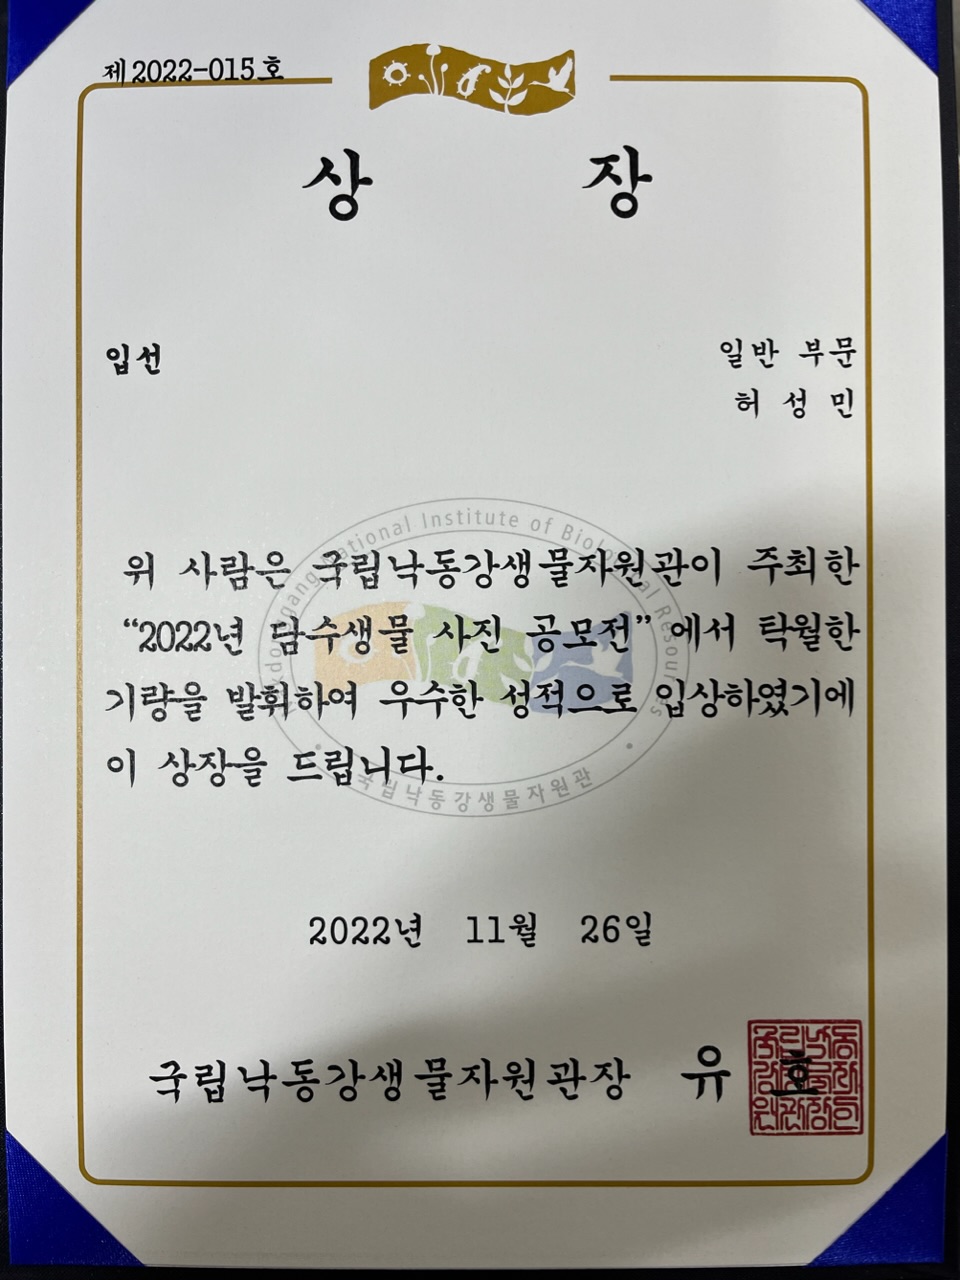 제2022-015호
상 장
입선
일반 부문
허 성 민
위 사람은 국립낙동강생물자원관이 주최한
“2022년 담수생물 사진 공모전”에서 탁월한
기량을 발휘하여 우수한 성적으로 입상하였기에
이 상장을 드립니다.
국립낙동강생물자원관
2022년 11월 26일
국립낙동강생물자원관장 유 호